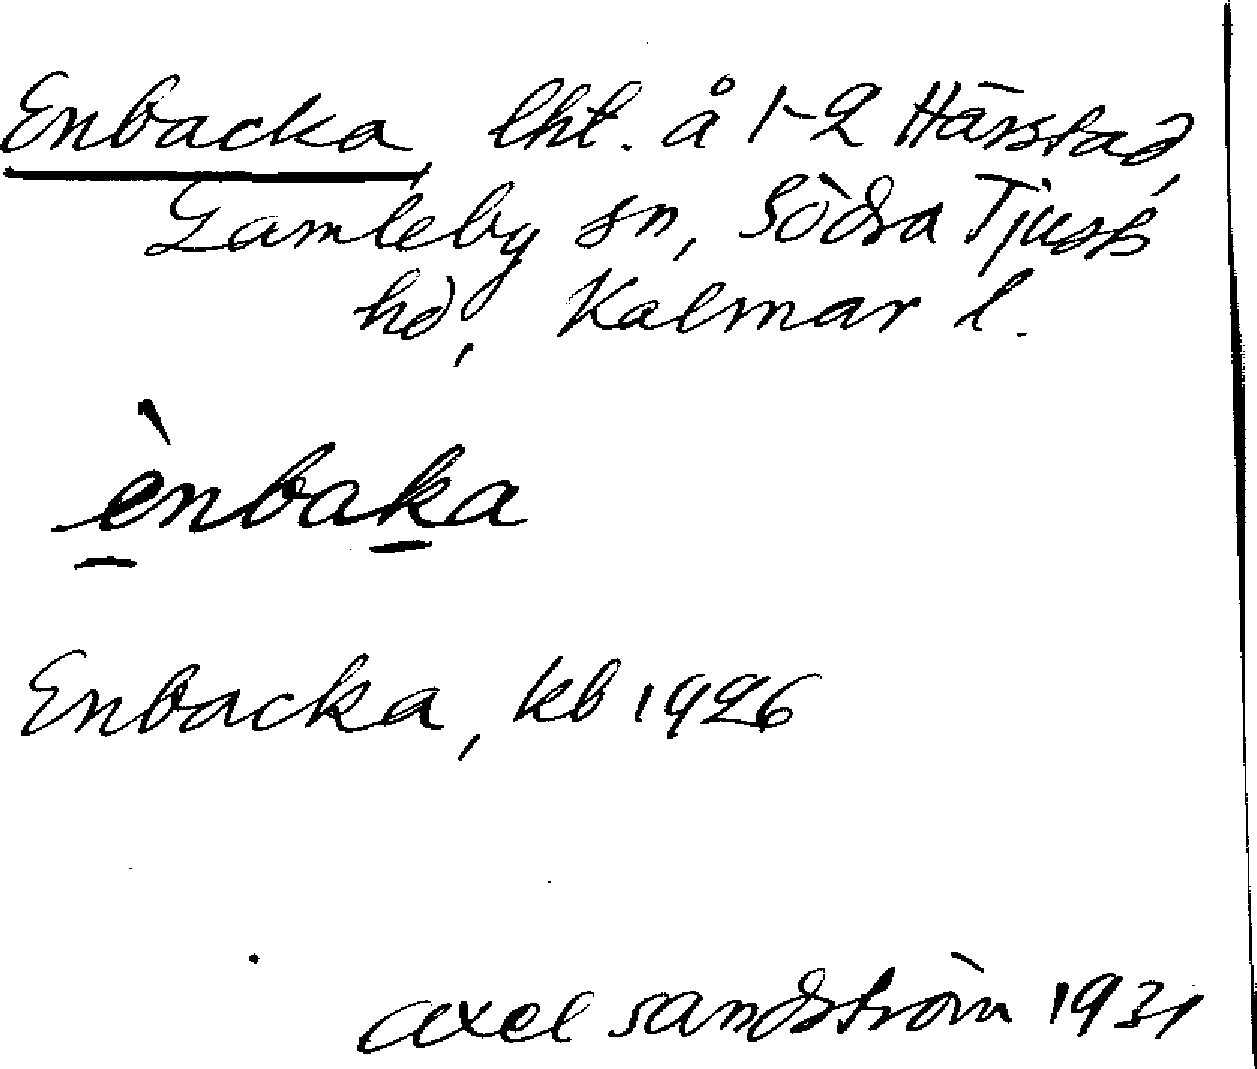 Enbacka, lht. å 1-2 Härstad,
Gamleby sn, Södra Tjusts
hd, Kalmar l.
ènbaka
Enbacka, kb 1926
Axel Sandström 1931